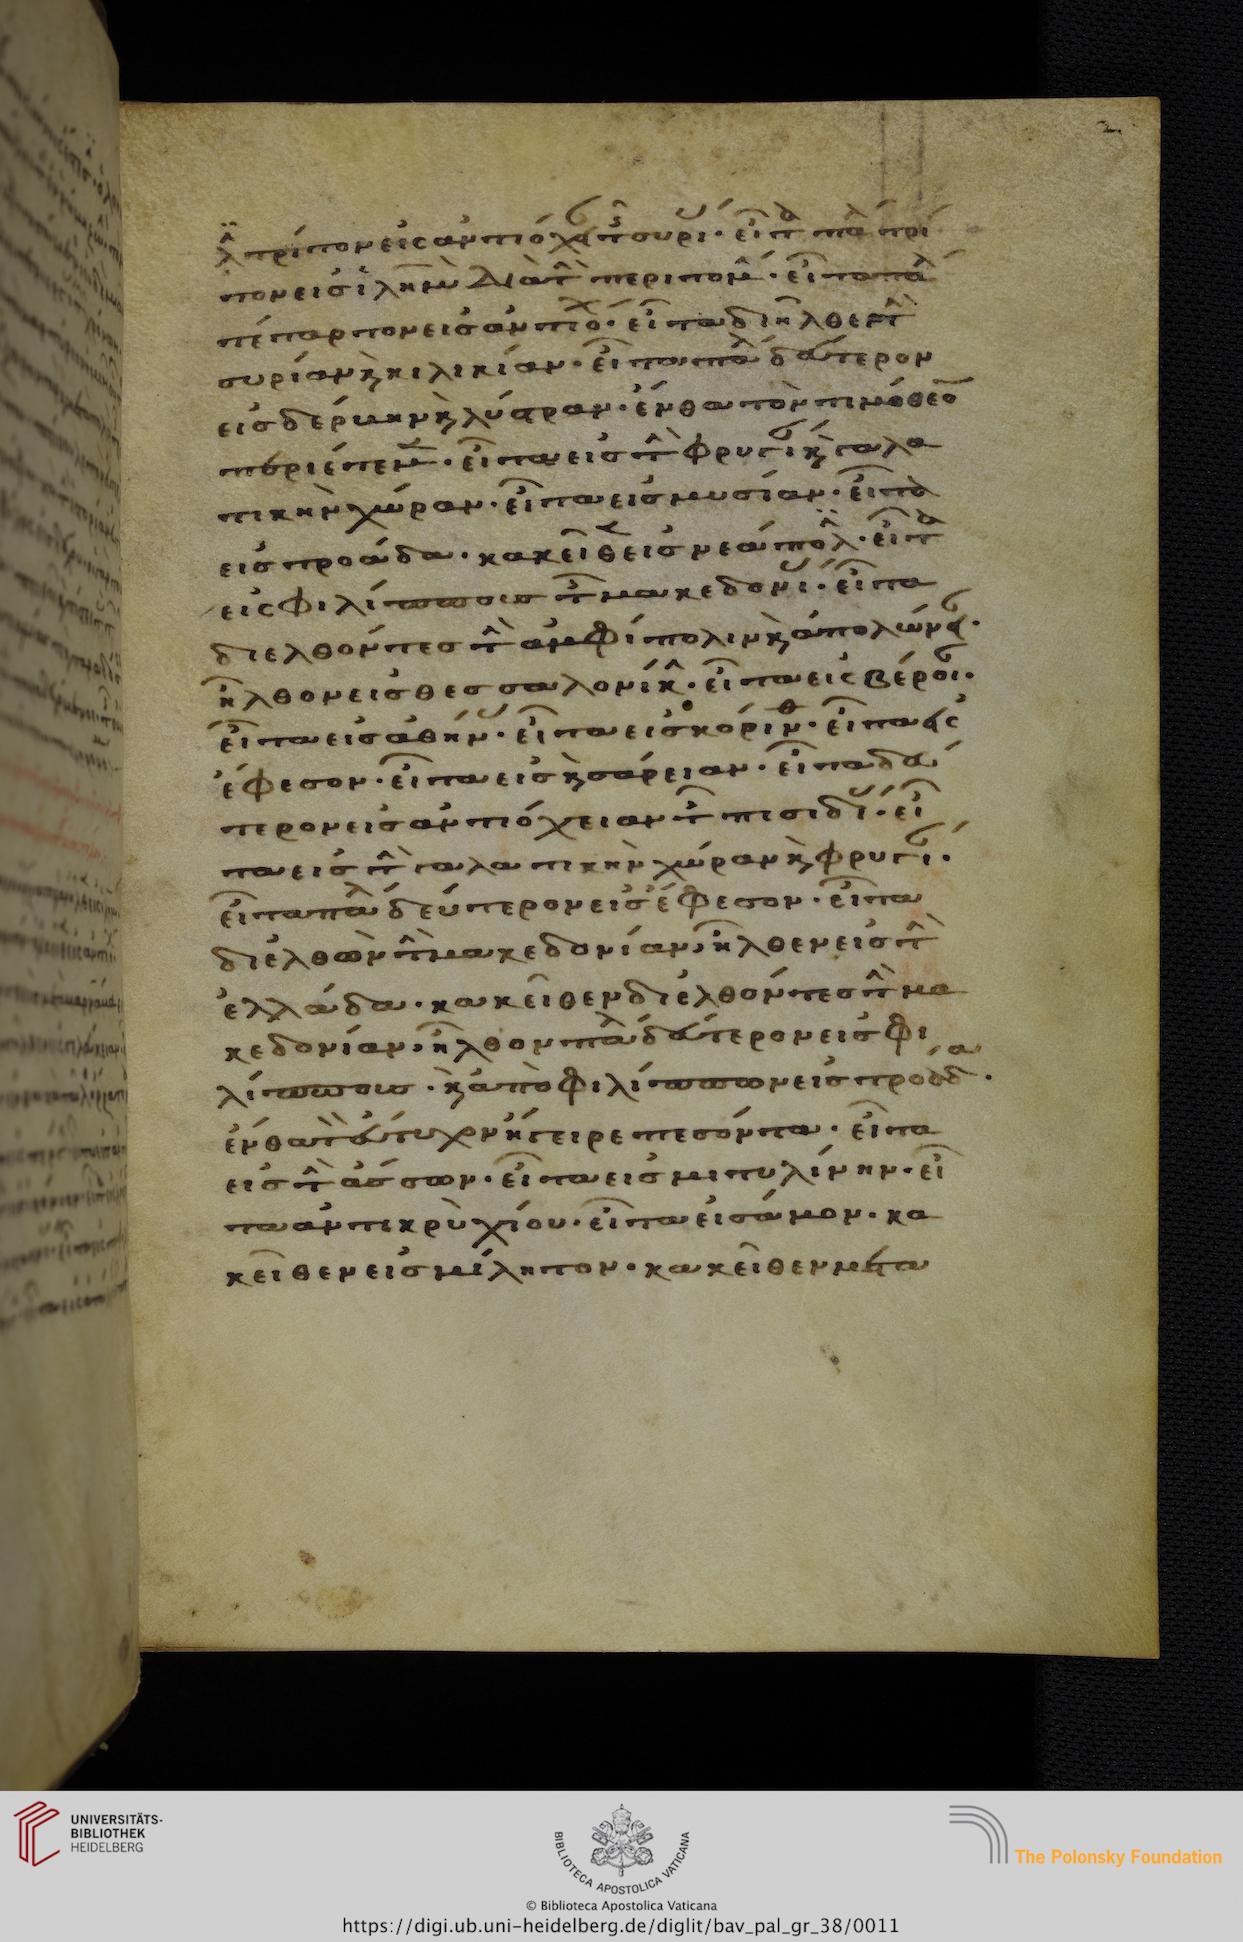 2.
λ τρίτον εἰς ἀντιόχ τῆς συρί· εἶτ πά τρί
τον εἰς ἱλημ διὰ τὴ περιτομ· εἶτα πά
τέταρτον εἰς ἀντιό· εἶτα διῆλθε τὴ
συρίαν κ κιλικίαν· εἶτα πά δεύτερον
εἰς δέρβην κ λύστραν· ἔνθα τὸν τιμόθεο
περιέτεμ· εἶτα εἰς τὴ φρυγί κ γαλα
τικὴν χώραν· εἶτα εἰς μυσίαν· εἶτα
εἰς τρωάδα· κακεῖθε εἰς νεάπολ· εἶτ
εἰς φιλίππους τῆ μακεδονί· εἶτα
διελθόντες τὴ ἀμφίπολιν κ ἀπολων·
ἦλθον εἰς θεσσαλονίκ· εἶτα εἰς βέροι·
εἶτα εἰς ἀθήν· εἶτα εἰς κόρινθ· εἶτα εἰς
ἔφεσον· εἶτα εἰς κσάρειαν· εἶτα δεύ
τερον εἰς ἀντιόχειαν τῆ πισιδί· εἶ
τα εἰς τὴ γαλατικὴν χώραν κ φρυγί·
εἶτα πά δεύτερον εἰς ἔφεσον· εἶτα
διελθὼν τὴ μακεδονίαν, ἦλθεν εἰς τὴ
ελλάδα· κακεῖθεν διελθόντες τὴ μα
κεδονίαν, ἦλθον πά δεύτερον εἰς φι
λίππους· κ ἀπὸ φιλίππων εἰς τρωάδ·
ἔνθα τὸ εύτυχον ήγειρε πεσόντα· εἶτα
εἰς τὴ ἄσσον· εἶτα εἰς μιτυλίνην· εἶ
τα ἀντικρὺ χίου· εἶτα εἰς σάμον· κα
κεῖθεν εἰς μίλητον· κακεῖθεν μετα
UNIVERSITÄTS-
BIBLIOTHEK
HEIDELBERG
BIBLIOTECA APOSTOLICA VATICANA
The Polonsky Foundation
© Biblioteca Apostolica Vaticana
https://digi.ub.uni-heidelberg.de/diglit/bav_pal_gr_38/0011